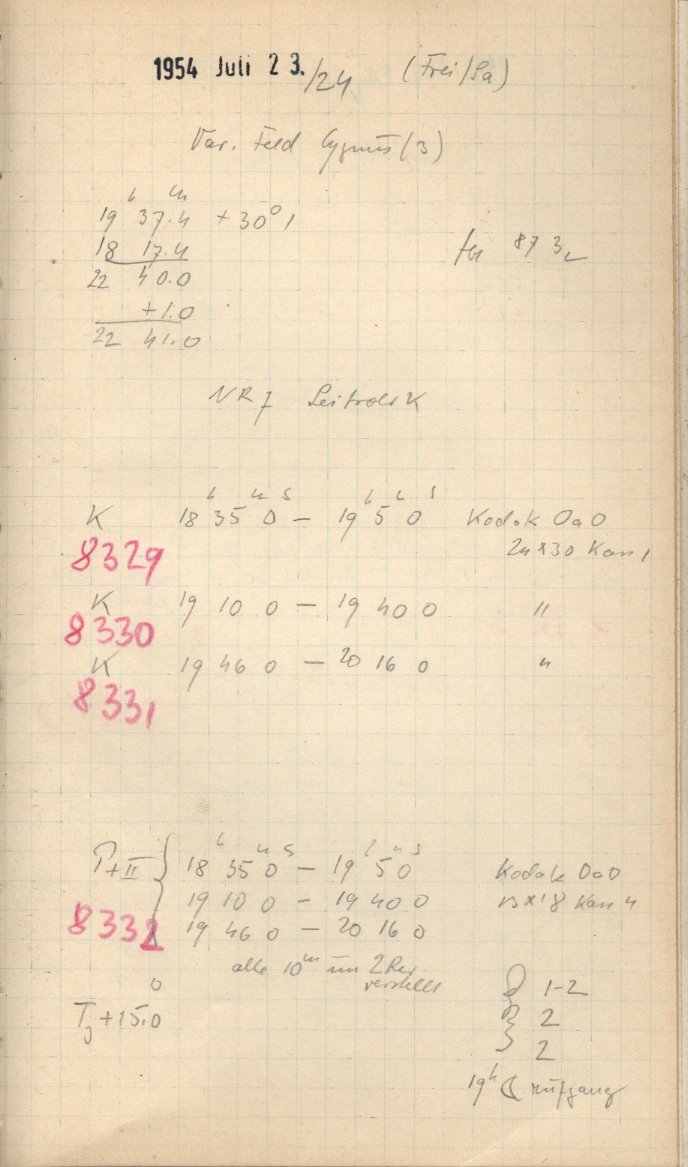 1954 Juli 23./24 (Frei/Sa)
Var. Feld Cygnus (3)
h m
19 37.4 + 30° 1
18 17.4
22 40.0 87 3
+1.0
22 41.0
NR 7
h m s h m s
K 18 35 0 – 19 5 0 Kodak OaO
8329 24x30 Kass 1
K 19 10 0 – 19 40 0 "
8330
K 19 46 0 – 20 16 0 "
8331
h m s h m s
P+II } 18 35 0 – 19 5 0 Kodak OaO
19 10 0 – 19 40 0 13x18 Kass 4
8332 19 46 0 – 20 16 0
alle 10m um 2 Rev
o verstellt
1-2
T +15.0 2
2
19h ☾ Aufgang